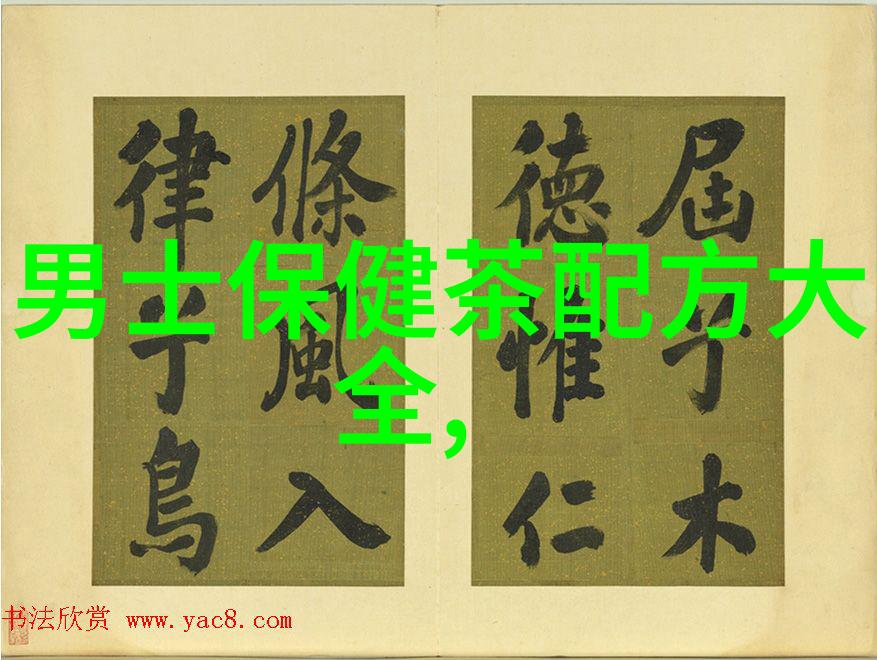 屆乎木
德惟仁
條風入
律乎鳥
男士保健茶配方大
全,
书法欣赏 www.yac8.com